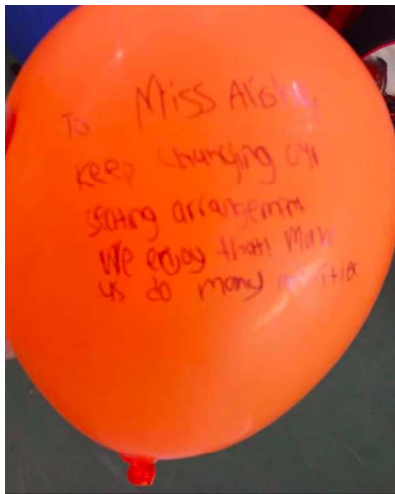 To Miss Alisha,
Keep changing our
seating arrangement
We enjoy that! Make
us do many